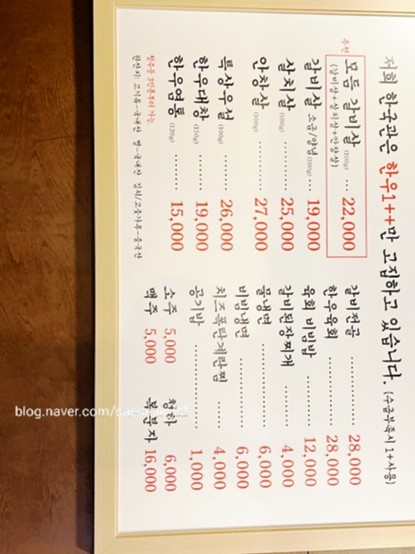 저희 한국관은 한우1++만 고집하고 있습니다. (수급부족시 1+사용)
추천
모듬 갈비살 (100g) ... 22,000
(갈비살+살치살+안창살)
갈비살 소금/양념 (100g) ... 19,000
살치살 (100g) ........ 25,000
안창살 (100g) ........ 27,000
특상우설 (100g) ........ 26,000
한우대창 (150g) ........ 19,000
한우염통 (120g) ........ 15,000
첫주문 3인분부터 가능.
원산지: 고기류-국내산 쌀-국내산 김치/고춧가루-중국산
갈비전골 ........ 28,000
한우육회 ........ 28,000
육회 비빔밥 ........ 12,000
갈비된장찌개 ........ 4,000
물냉면 ........ 6,000
비빔냉면 ........ 6,000
치즈폭탄계란찜 ........ 4,000
공기밥 ........ 1,000
소주 5,000 청하 6,000
맥주 5,000 복분자 16,000